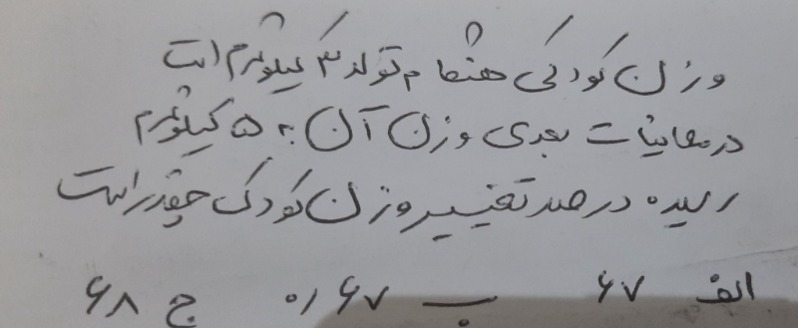 وزن کودکی هنگام تولد ۳ کیلوگرم است
در معاینات بعدی وزن آن به ۵ کیلوگرم
رسیده درصد تغییر وزن کودک چقدر است
الف ۶۷ ب ۰/۶۷ ج ۶۸